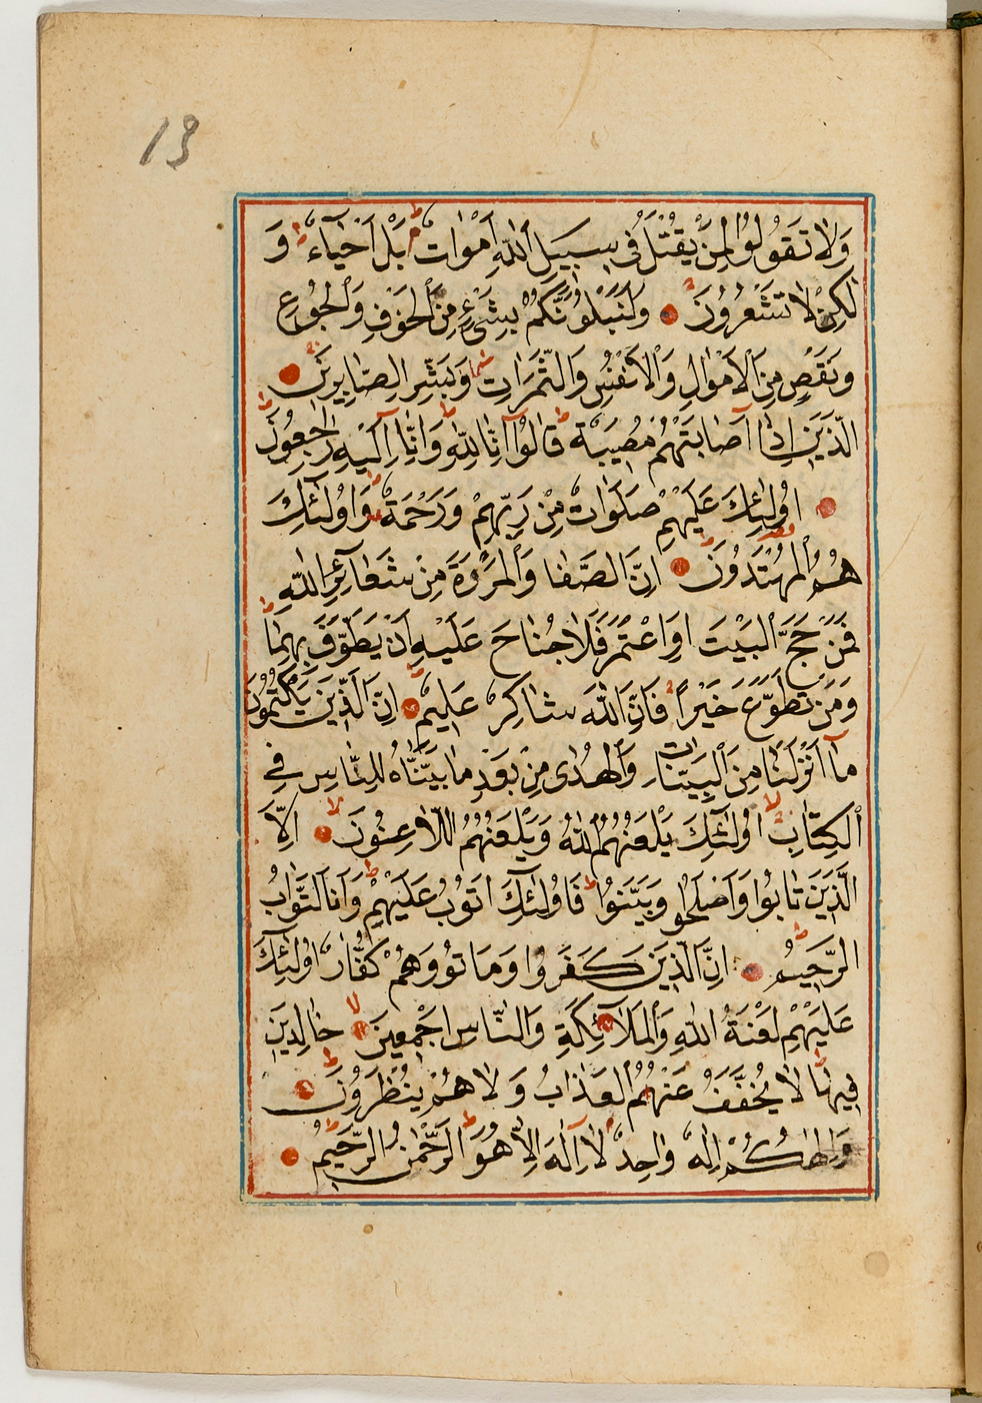 13
وَلَا تَقُولُوا لِمَنْ يُقْتَلُ فِى سَبِيلِ اللّٰهِ اَمْوَاتٌ بَلْ اَحْيَاءٌ وَ
لٰكِنْ لَا تَشْعُرُونَ وَلَنَبْلُوَنَّكُمْ بِشَىْءٍ مِنَ الْخَوْفِ وَالْجُوعِ
وَنَقْصٍ مِنَ الْاَمْوَالِ وَالْاَنْفُسِ وَالثَّمَرَاتِ وَبَشِّرِ الصَّابِرِينَ
الَّذِينَ اِذَا اَصَابَتْهُمْ مُصِيبَةٌ قَالُوا اِنَّا لِلّٰهِ وَاِنَّا اِلَيْهِ رَاجِعُونَ
اُولٰئِكَ عَلَيْهِمْ صَلَوَاتٌ مِنْ رَبِّهِمْ وَرَحْمَةٌ وَاُولٰئِكَ
هُمُ الْمُهْتَدُونَ اِنَّ الصَّفَا وَالْمَرْوَةَ مِنْ شَعَائِرِ اللّٰهِ
فَمَنْ حَجَّ الْبَيْتَ اَوِ اعْتَمَرَ فَلَا جُنَاحَ عَلَيْهِ اَنْ يَطَّوَّفَ بِهِمَا
وَمَنْ تَطَوَّعَ خَيْرًا فَاِنَّ اللّٰهَ شَاكِرٌ عَلِيمٌ اِنَّ الَّذِينَ يَكْتُمُونَ
مَا اَنْزَلْنَا مِنَ الْبَيِّنَاتِ وَالْهُدٰى مِنْ بَعْدِ مَا بَيَّنَّاهُ لِلنَّاسِ فِى
الْكِتَابِ اُولٰئِكَ يَلْعَنُهُمُ اللّٰهُ وَيَلْعَنُهُمُ اللَّاعِنُونَ اِلَّا
الَّذِينَ تَابُوا وَاَصْلَحُوا وَبَيَّنُوا فَاُولٰئِكَ اَتُوبُ عَلَيْهِمْ وَاَنَا التَّوَّابُ
الرَّحِيمُ اِنَّ الَّذِينَ كَفَرُوا وَمَاتُوا وَهُمْ كُفَّارٌ اُولٰئِكَ
عَلَيْهِمْ لَعْنَةُ اللّٰهِ وَالْمَلَائِكَةِ وَالنَّاسِ اَجْمَعِينَ خَالِدِينَ
فِيهَا لَا يُخَفَّفُ عَنْهُمُ الْعَذَابُ وَلَا هُمْ يُنْظَرُونَ
وَاِلٰهُكُمْ اِلٰهٌ وَاحِدٌ لَا اِلٰهَ اِلَّا هُوَ الرَّحْمٰنُ الرَّحِيمُ